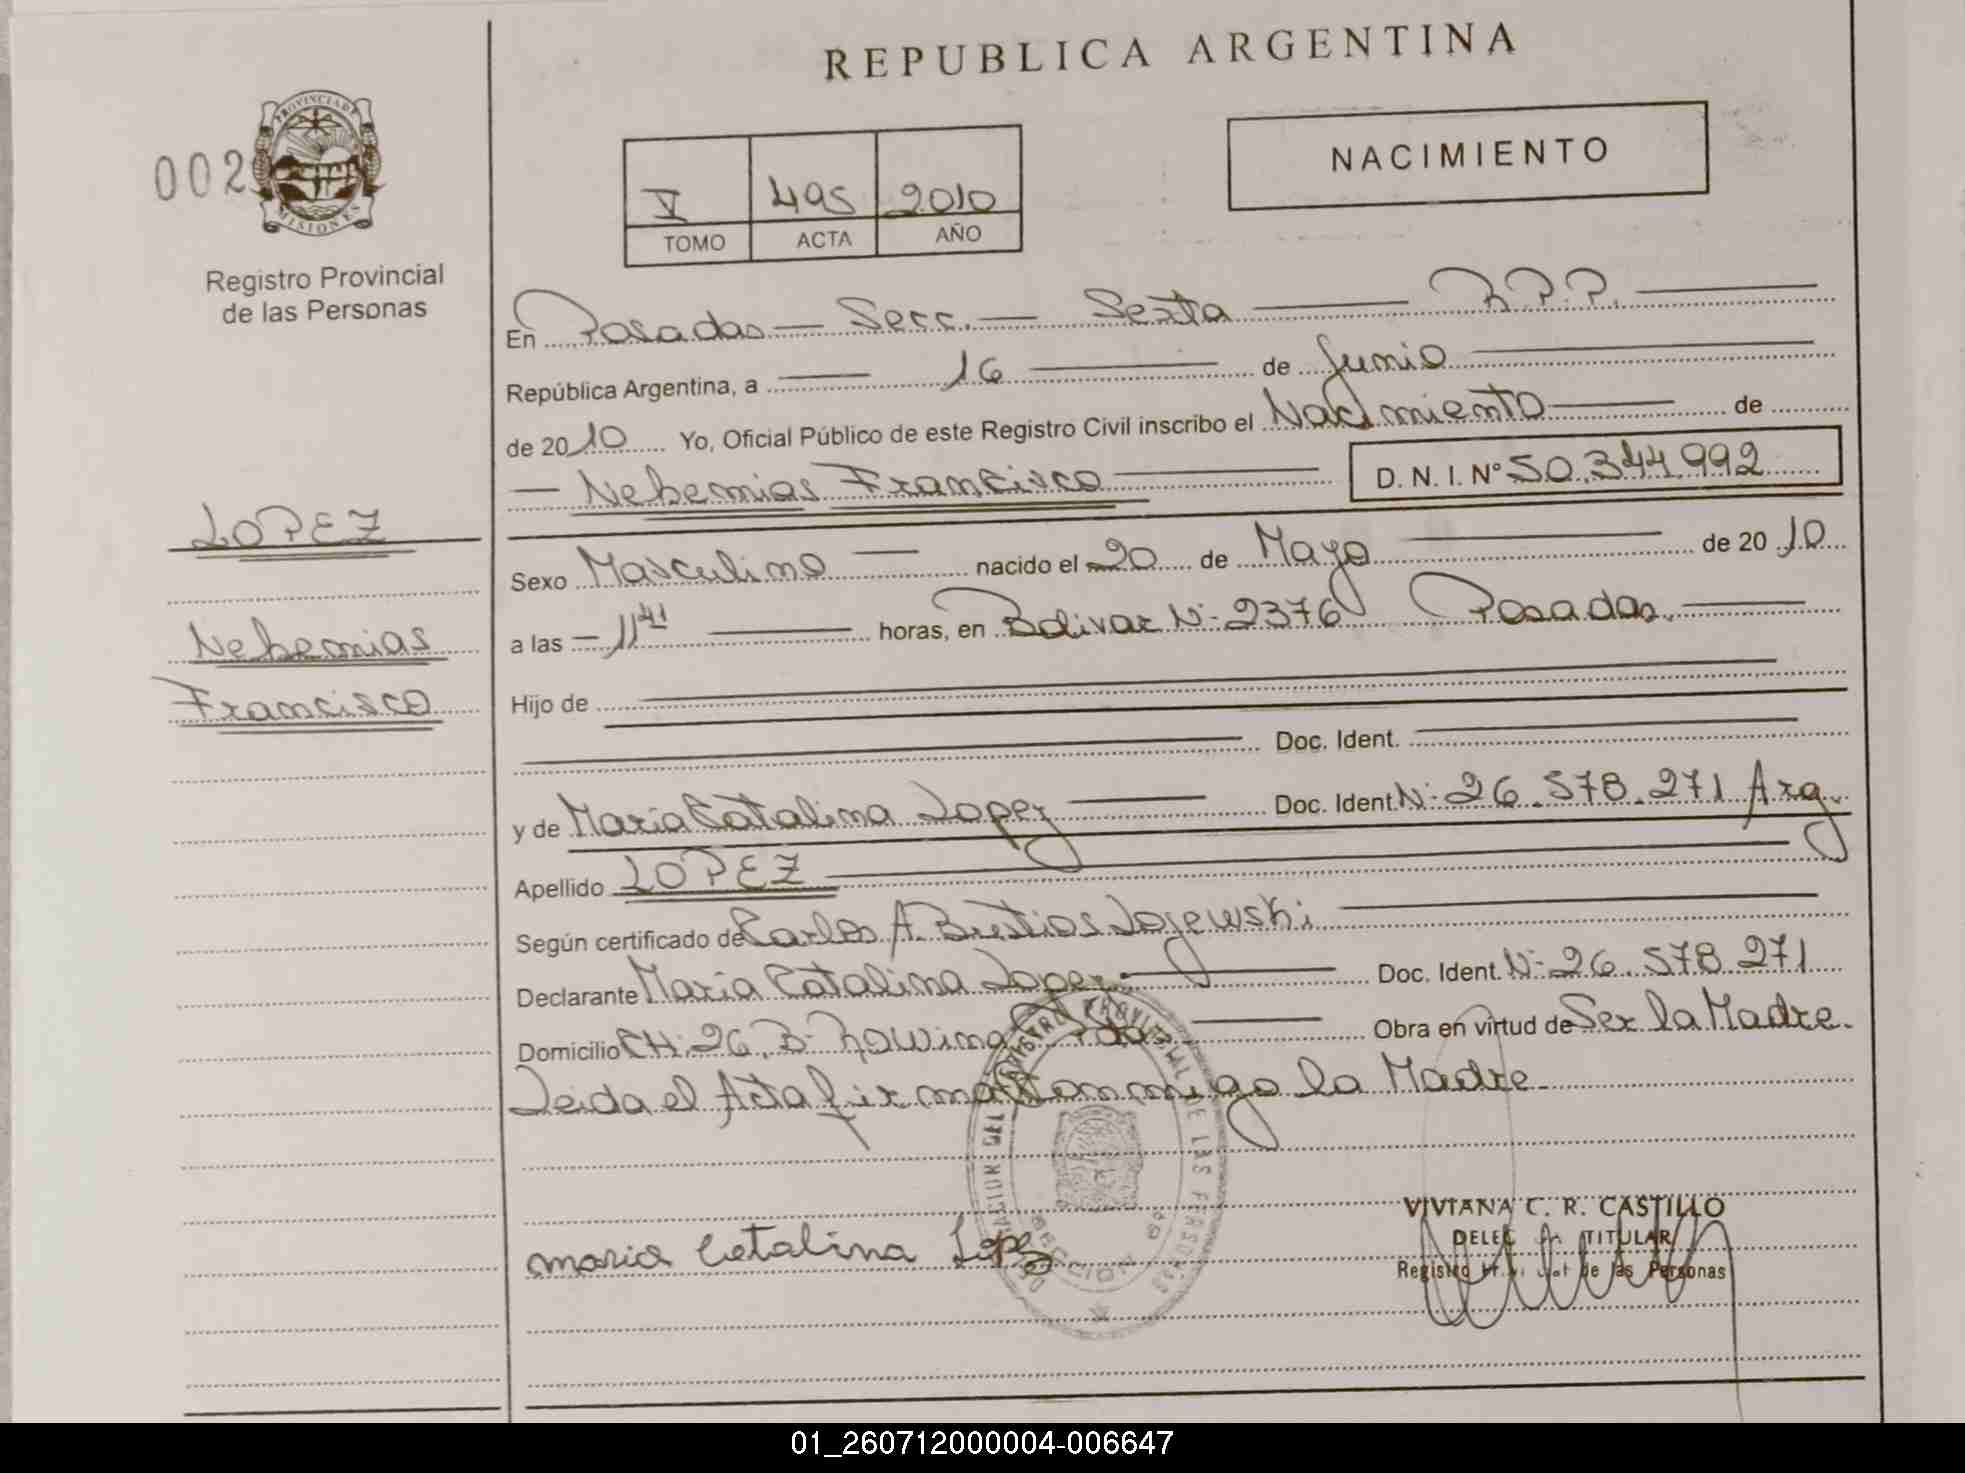 REPUBLICA ARGENTINA
002
PROVINCIA DE MISIONES
Registro Provincial
de las Personas
NACIMIENTO
V 495 2010
TOMO ACTA AÑO
En Posadas — Secc. — Sexta — R.P.P. —
República Argentina, a — 16 — de Junio —
de 2010 Yo, Oficial Público de este Registro Civil inscribo el Nacimiento — de
— Nehemias Francisco — D. N. I. N° 50.344.992
LOPEZ
Nehemias
Francisco
Sexo Masculino — nacido el 20 de Mayo — de 2010
a las — 11 41 — horas, en Bolivar N° 2376 Posadas. —
Hijo de —
— Doc. Ident. —
y de Maria Catalina Lopez — Doc. Ident. N° 26.578.271 Arg.
Apellido LOPEZ —
Según certificado de Carlos A. Bustios Lojewski —
Declarante Maria Catalina Lopez — Doc. Ident. N° 26.578.271
Domicilio CH. 26. B° Rowing Pdas — Obra en virtud de Ser la Madre.
Leida el Acta firma conmigo la Madre
maria Catalina Lopez
VIVIANA C. R. CASTILLO
TITULAR
Registro de las Personas
REGISTRO PROVINCIAL DE LAS PERSONAS
SECCION 6a
01_260712000004-006647